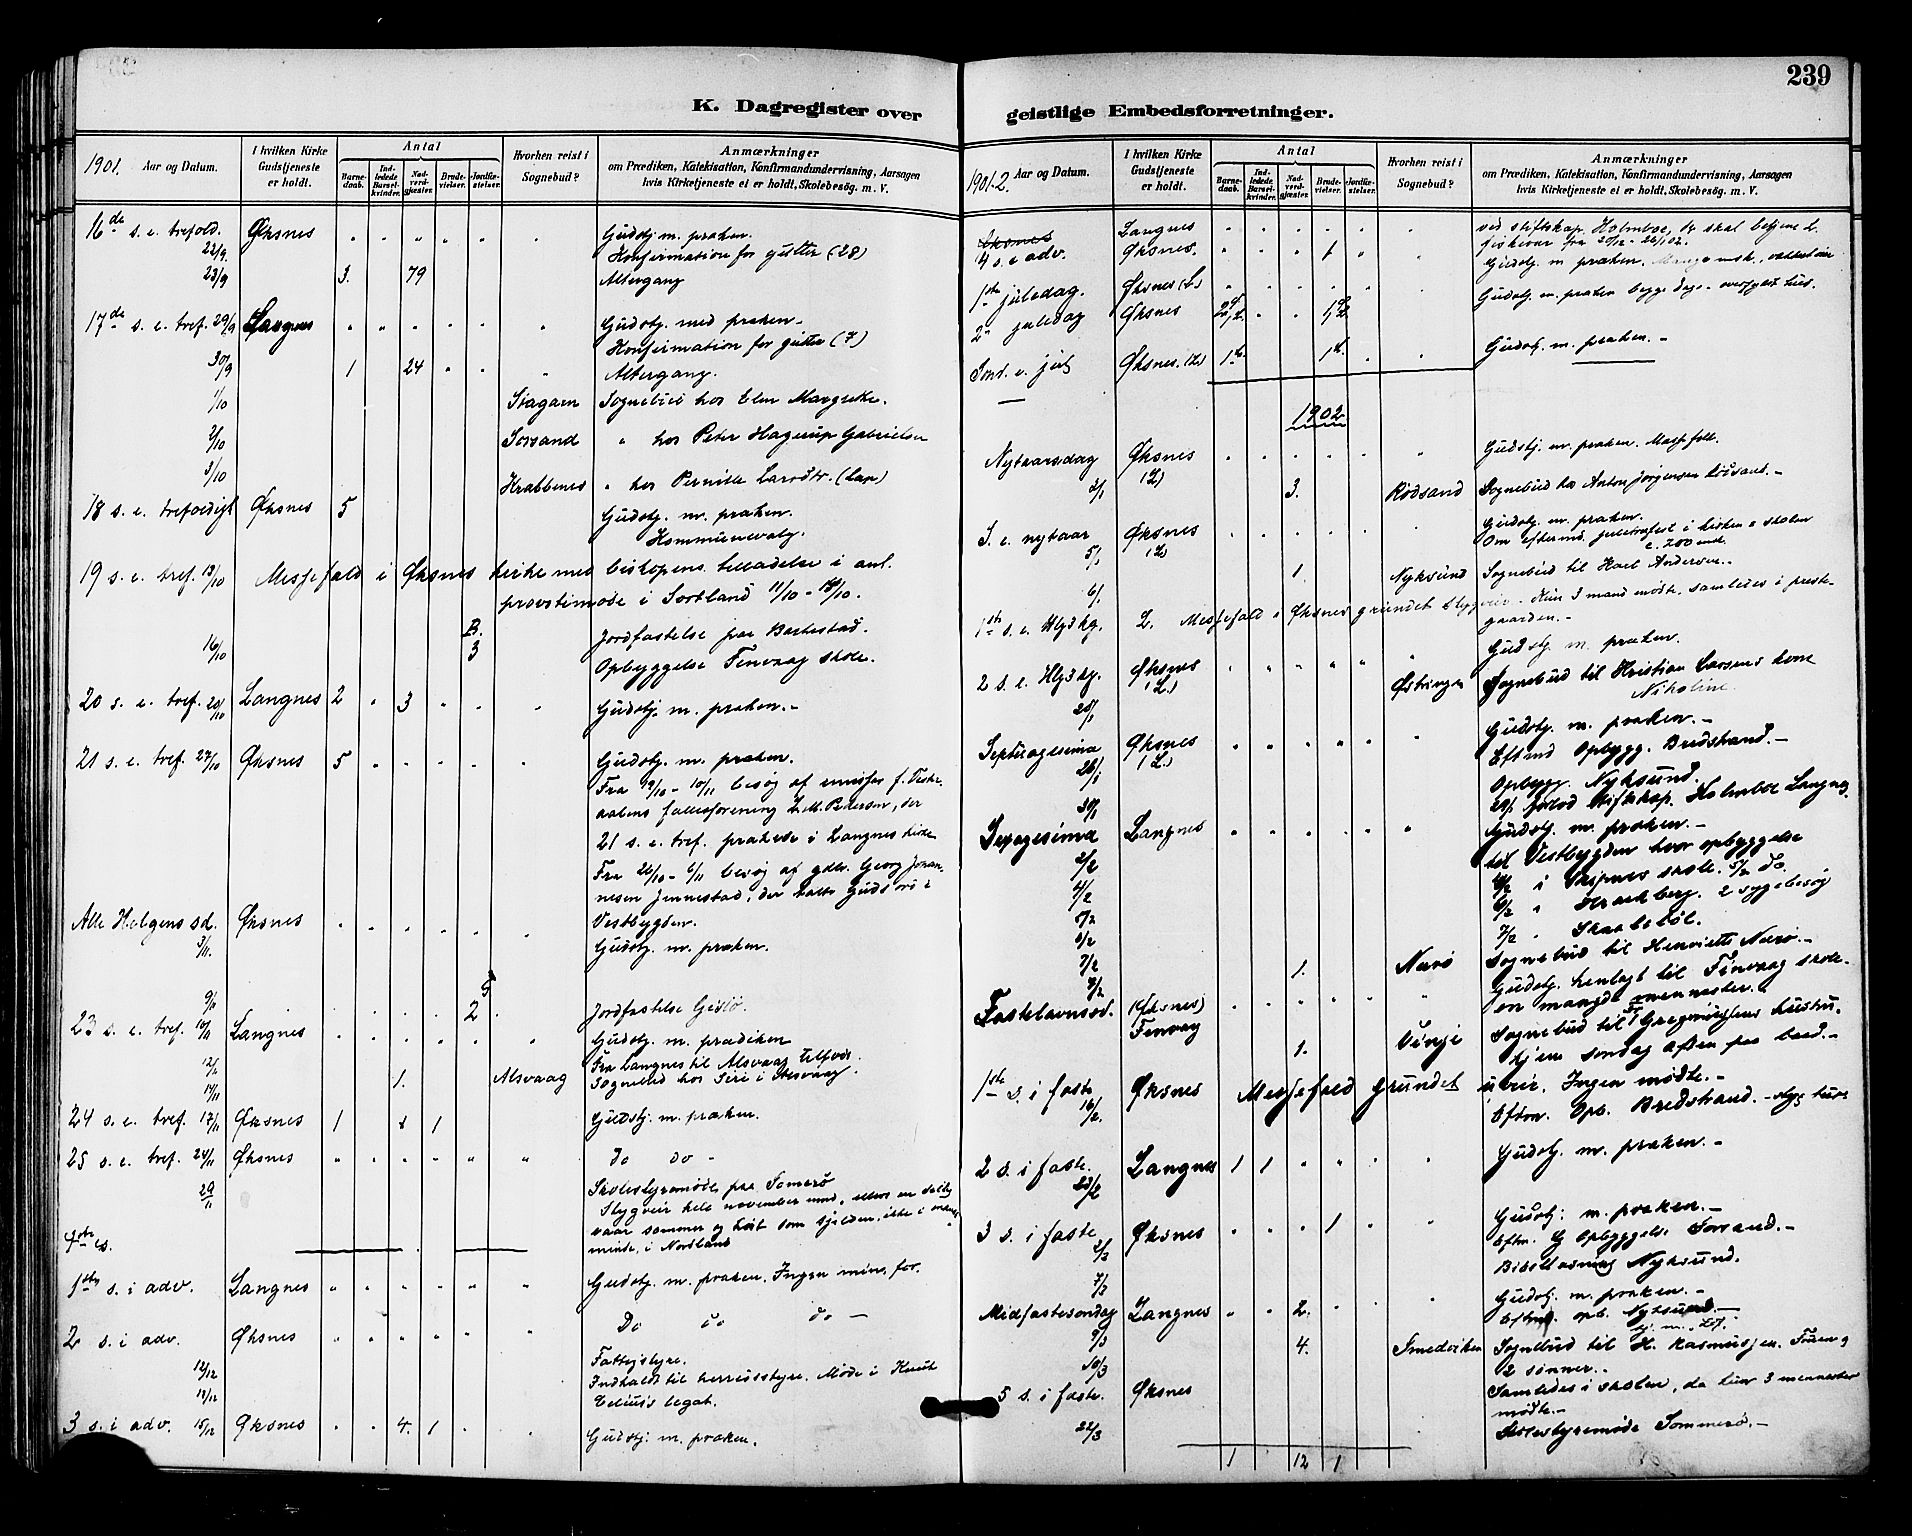 239
K. Dagregister over geistlige Embedsforretninger.
1901. Aar og Datum.
I hvilken Kirke Gudstjeneste er holdt.
Antal
Barnedaab.
Indledede Barselkvinder.
Nadverdgjæster.
Brudevielser.
Jordfæstelser.
Hvorhen reist i Sognebud?
Anmærkninger
om Prædiken, Katekisation, Konfirmandundervisning, Aarsagen
hvis Kirketjeneste ei er holdt, Skolebesög m. V.
16de s. e. trefold. Øksnes " " " " " " Gudstj. m. præken.
22/9. Konfirmation for gutter (28)
23/9 3. 79 Altergang
17de s. e. tref. 29/9 Langnes " " " " " " Gudstj. med præken.
Konfirmation for gutter (7)
30/9 1 24 " " " Altergang.
1/10 Stagarn Sognebud hos Elen Margrethe.
2/10 Sorsand " hos Peter Hagerup Gabrielsen
3/10 Krabbenes " hos Pernille Larsdtr.
18 s. e. trefoldigh Øksnes 5 Gudstj. m. præken.
Kommunevalg.
19 s. e. tref. 13/10 Messefald i Øksnes kirke med biskopens tilladelse i anl.
provstimøde i Sortland 11/10 -
B.
16/10 3 Jordfæstelse paa Barkestad.
Opbyggelse Finvaag skole.
20 s. e. tref. 20/10 Langnes 2 " 3 " " " Gudstj. m. præken. -
21 s. e. tref. 27/10 Øksnes 5 " " " " " Gudstj. m. præken.
besøg af emissær f. Vester-
aalens fællesforening Pedersen, der
21 s. e. tref. prækede i Langnes kirke
besøg af Georg Johan-
nesen Jennestad, der holdt Guds ord i
Vestbygden.
Alle Helgens sd. Øksnes " " " " " " Gudstj. m. præken.
3/11.
9/11 2 Jordfæstelse Gislø.
23 s. e. tref. 10/11 Langnes " " " " " " Gudstj. m. prædiken
Fra Langnes til Alsvaag
1. Alsvaag Sognebud hos Siri i Alsvaag.
24 s. e. tref. 17/11 Øksnes 1 1 Gudstj. m. præken.
25 s. e. tref. 24/11 Øksnes " " " " " " Do do -
29/11 Skolestyremøde paa Somerø
Stygveir hele november mnd,
vaar sommer og høst som sjelden, ikke i
minde, i Nordland
1ste s. i adv. Langnes " " " " " " Gudstj. m. præken. Ingen
2 s. i adv. Øksnes " " " " " " Do do do -
12/12 Fattigstyre.
Møde i Knut
legat.
3 s. i adv. 15/12 Øksnes " " 4. 1 " " Gudstj. m. præken.
1901-2. Aar og Datum.
I hvilken Kirke Gudstjeneste er holdt.
Antal
Barnedaab.
Indledede Barselkvinder.
Nadverdgjæster.
Brudevielser.
Jordfæstelser.
Hvorhen reist i Sognebud?
Anmærkninger
om Prædiken, Katekisation, Konfirmandundervisning, Aarsagen
hvis Kirketjeneste ei er holdt, Skolebesög m. V.
Langnes " " " " " " ved stiftskap. Holmboe, der skal betjene L.
4 s. i adv. Øksnes. " " " 1 " " Gudstj. m præken.
1ste juledag. Øksnes (L) " " " " " Gudstj. m. præken begge dage
2n juledag Øksnes
Sønd. e. jul Øksnes. (L) Gudstj. m. præken. -
1902
Nytaarsdag Øksnes (L) " " " " " Gudstj. m. præken. Masse folk.
2/1 3. Rødsand Sognebud hos Anton Jørgensen Rødsand. -
S. e. nytaar Øksnes (L) " " " " " " Gudstj. m. præken.
5/1 Om efterm. juletræfest i kirken o skolen
c. 200
6/1 1. Nyksund Sognebud til Karl Andersen. -
1ste s. e. Hlg3kg. L. Messefald i Øksnes grundet stygveir. Kun 3 mand mødte, samledes i præste-
gaarden. -
2 s. e. Hlg3kg. Øksnes (L) " " " " " " Gudstj m. præken.
20/1 Østringen Sognebud til Kristian Larsens kone
Nikoline.
Septuagesima Øksnes (L) " " " " " " Gudstj. m. præken. -
26/1 Eftmd Opbygg. Bredstrand. -
30/1 Opbygg. Nyksund.
stiftskap. Holmboe Langnes
Sexagesima Langnes " " " " " " Gudstj. m. præken. -
2/2 til Vestbygden hvor opbyggelse
4/2 i Skipnes skole. 5/2 do.
5/2 6/2 " 2 sygebesøg
6/2 7/2 " Skaaebøl.
7/2 1. Nærø Sognebud til Henriette Nærø. -
Fastelavnssd. (Øksnes) Finvaag " " " " " " Gudstj. henlagt til Finvaag skole.
en mængde mennesker.
1. Vinje Sognebud til hustru,
hjem søndag aften paa baad. -
1ste s. i faste Øksnes Messefald grundet uveir. Ingen mødte. -
16/2. Eftm. Opb. Bredstrand.
2 s. i faste. Langnes 1 1 " " " " Gudstj. m. præken. -
23/2
3 s. i faste Øksnes " " " 1 " " Gudstj. m. præken. -
2/3 Eftm. Opbyggelse Sorsand. -
7/3 Bibellæsning Nyksund.
Midfastesøndag Langnes " " 2. " " " Gudstj. m. præken. -
9/3 opb. Nyksund. -
10/3 4. Smedviken Sognebud til H. Rasmussen.
2 sønner.
5 s. i faste. Øksnes Samledes i skolen, da kun 3 mennesker
mødte. -
22/3 Skolestyremøde Sommerø. -
1 12 1